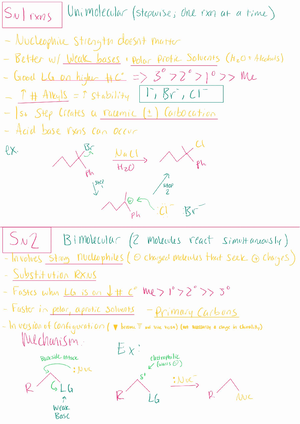 SN1 rxns Unimolecular (stepwise; one rxn at a time)
- Nucleophilic strength doesnt matter
- Better w/ weak bases + polar protic solvents (H2O + Alcohols)
- Good LG on higher # C => 3° > 2° > 1° >> Me
- ↑ # Alkyls = ↑ stability I-, Br-, Cl-
- 1st Step creates a racemic (±) Carbocation
- Acid base rxns can occur
ex
Br
Ph
NaCl
H2O
Cl
Ph
step 1
step 2
⊕
Ph
Cl-
Br-
SN2 Bimolecular (2 molecules react simultaneously)
- Involves strong nucleophiles (⊖ charged molecules that seek ⊕ charges)
- Substitution Rxns
- Fastest when LG is on ↓ # C Me > 1° > 2° >> 3°
- Faster in polar, aprotic solvents - Primary Carbons
- Inversion of configuration
Mechanism
Ex:
backside attack
:Nuc
R
LG
Weak Base
electrophilic
R
LG
:Nuc-
R
Nuc